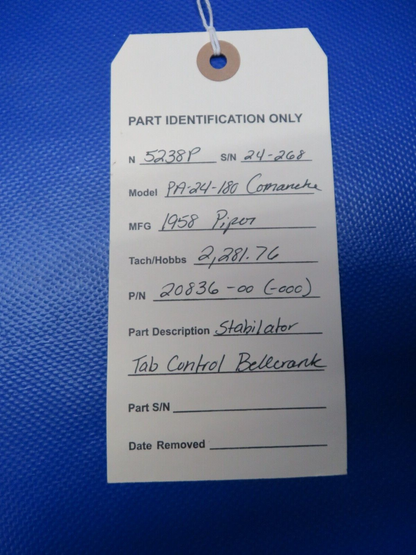 PART IDENTIFICATION ONLY
N 5238P S/N 24-268
Model PA-24-180 Comanche
MFG 1958 Piper
Tach/Hobbs 2,281.76
P/N 20836-00 (-000)
Part Description Stabilator
Tab Control Bellcrank
Part S/N
Date Removed